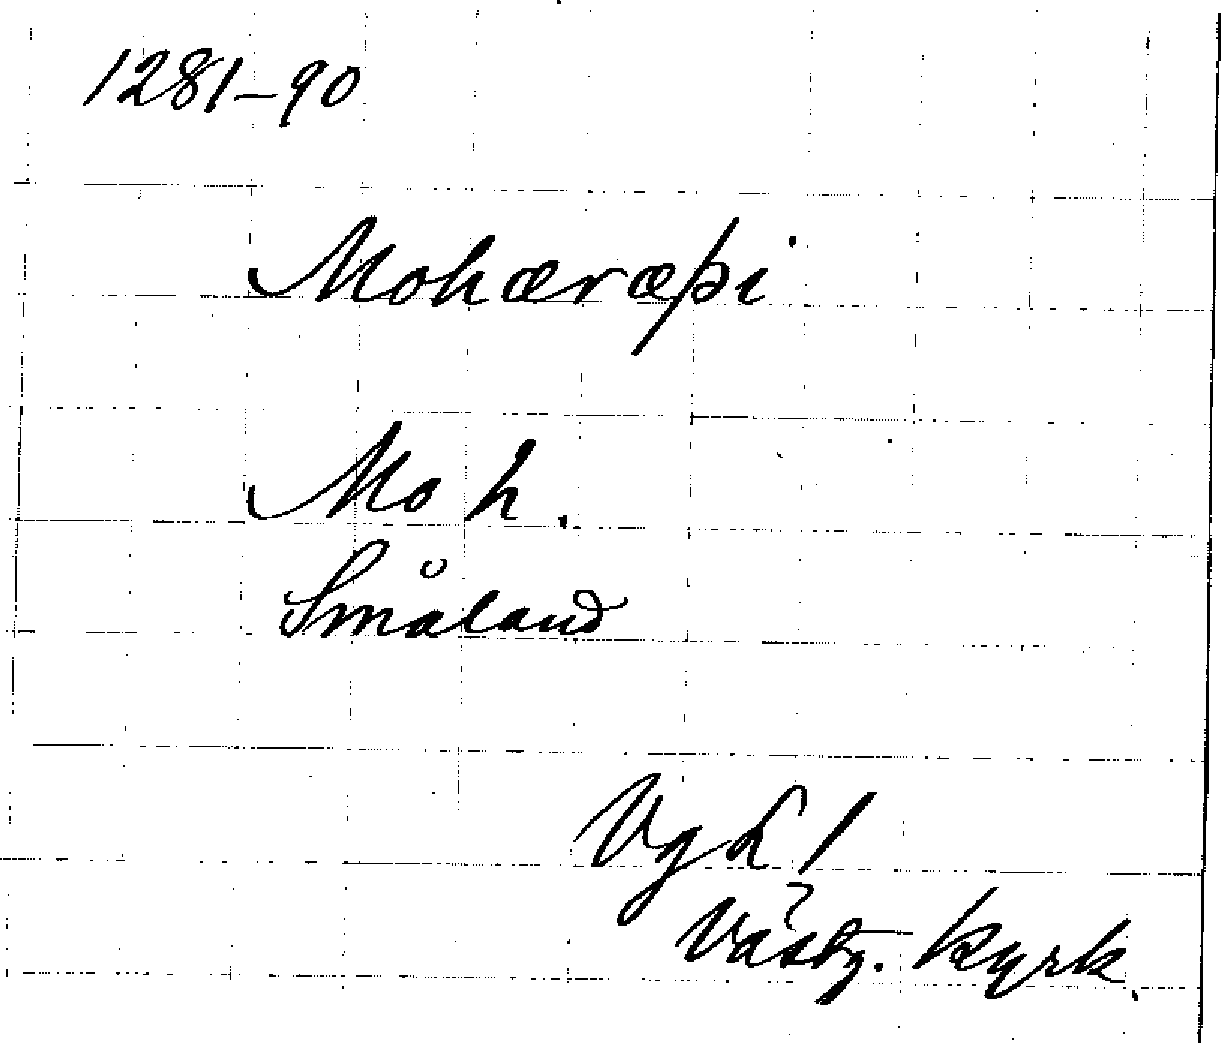 1281–90
Mohæræþi
Mo h.
Småland
Vg L 1
Västg. kyrk.